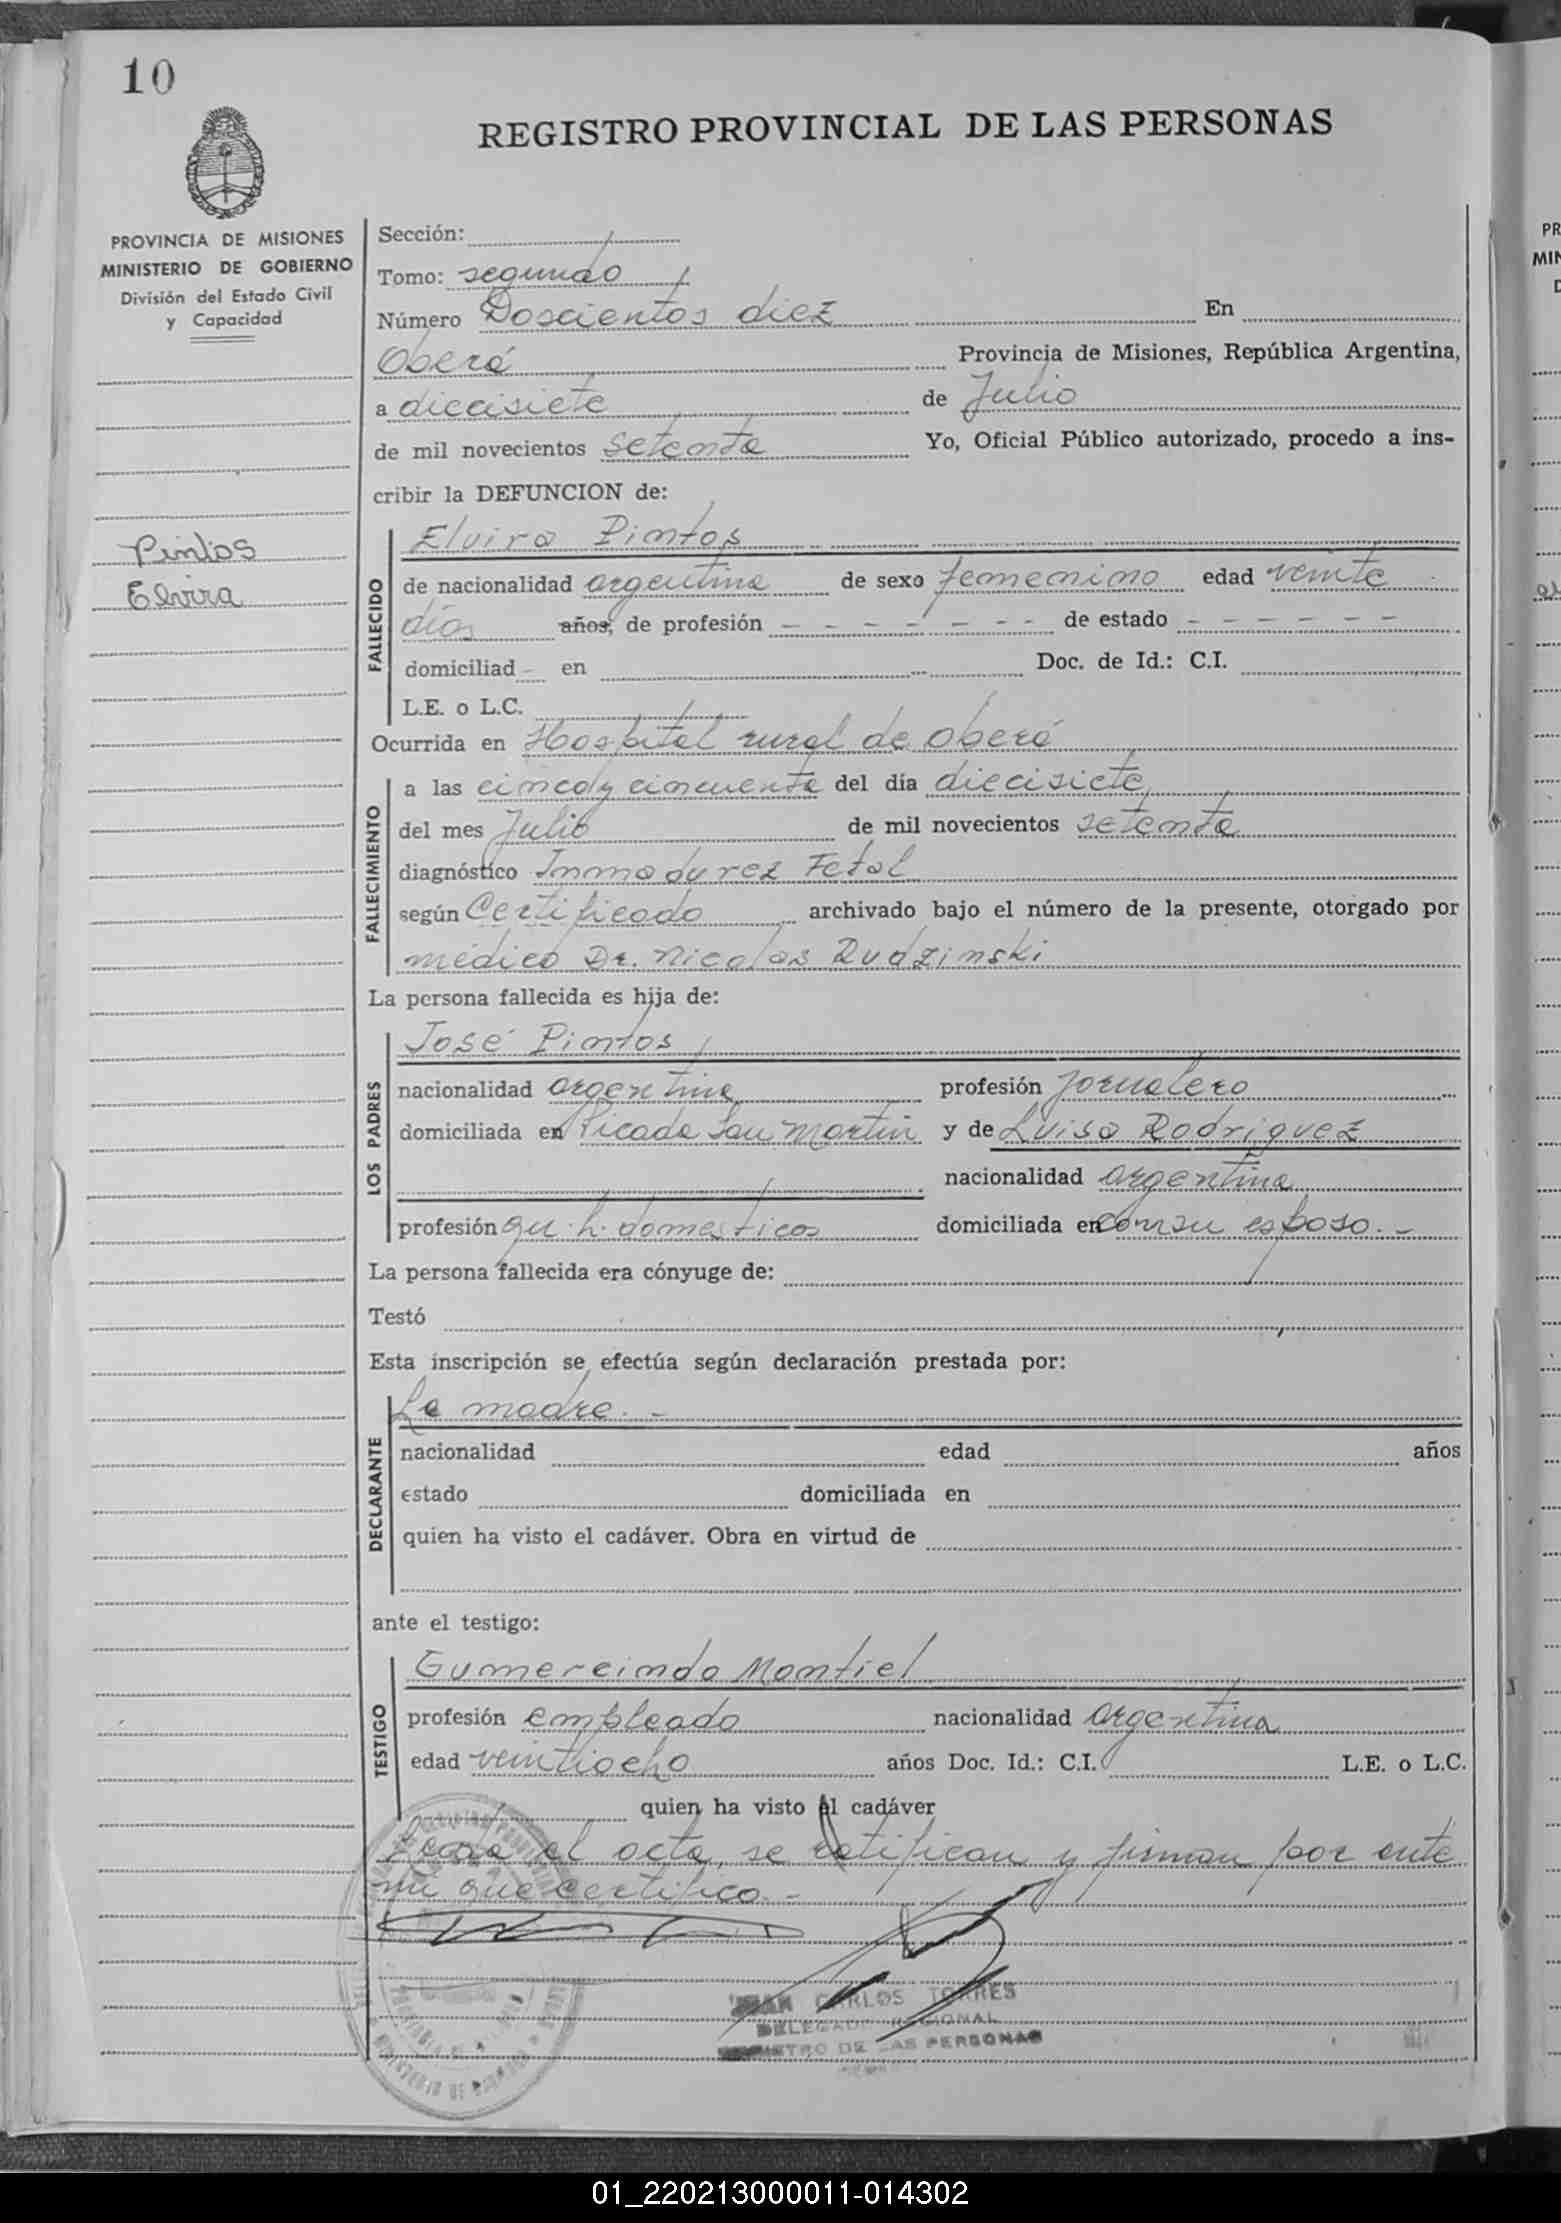 10
REGISTRO PROVINCIAL DE LAS PERSONAS
PROVINCIA DE MISIONES
MINISTERIO DE GOBIERNO
División del Estado Civil
y Capacidad
Pintos
Elvira
Sección:
Tomo: segundo
Número Doscientos diez En
Oberá Provincia de Misiones, República Argentina,
a diecisiete de Julio
de mil novecientos setenta Yo, Oficial Público autorizado, procedo a ins-
cribir la DEFUNCION de:
FALLECIDO
Elvira Pintos
de nacionalidad argentina de sexo femenino edad veinte
días años, de profesión - - - - - - - - de estado - - - - - -
domiciliad - en Doc. de Id.: C.I.
L.E. o L.C.
Ocurrida en Hospital rural de Oberá
FALLECIMIENTO
a las cinco y cincuenta del día diecisiete
del mes Julio de mil novecientos setenta
diagnóstico Inmadurez Fetal
según Certificado archivado bajo el número de la presente, otorgado por
médico Dr. Nicolas Rudzinski
La persona fallecida es hija de:
LOS PADRES
José Pintos
nacionalidad argentina profesión jornalero
domiciliada en Picada San Martin y de Luisa Rodriguez
nacionalidad argentina
profesión qu. h. domesticos domiciliada en con su esposo. -
La persona fallecida era cónyuge de:
Testó
Esta inscripción se efectúa según declaración prestada por:
DECLARANTE
La madre. -
nacionalidad edad años
estado domiciliada en
quien ha visto el cadáver. Obra en virtud de
ante el testigo:
TESTIGO
Gumercindo Montiel
profesión empleado nacionalidad argentina
edad veintiocho años Doc. Id.: C.I. L.E. o L.C.
quien ha visto el cadáver
Leida el acta, se ratifican y firman por ante
mi que certifico. -
JUAN CARLOS TORRES
DELEGADO REGIONAL
REGISTRO DE LAS PERSONAS
01_220213000011-014302